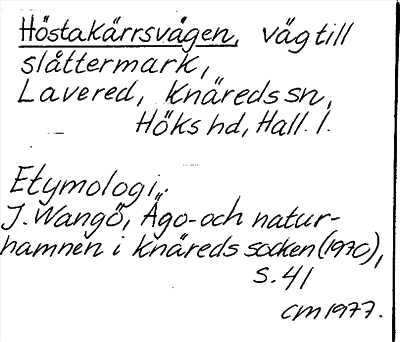 Höstakärrsvägen, väg till
slåttermark,
Lavered, Knäreds sn,
Höks hd, Hall. l.
Etymologi:
J. Wangö, Ägo- och natur-
hamnen i Knäreds socken (1970),
s. 41
CM 1977.